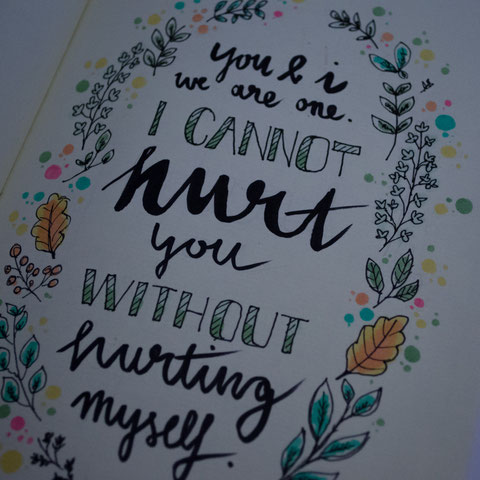 you & i
we are one.
I CANNOT
hurt
you
WITHOUT
hurting
myself.